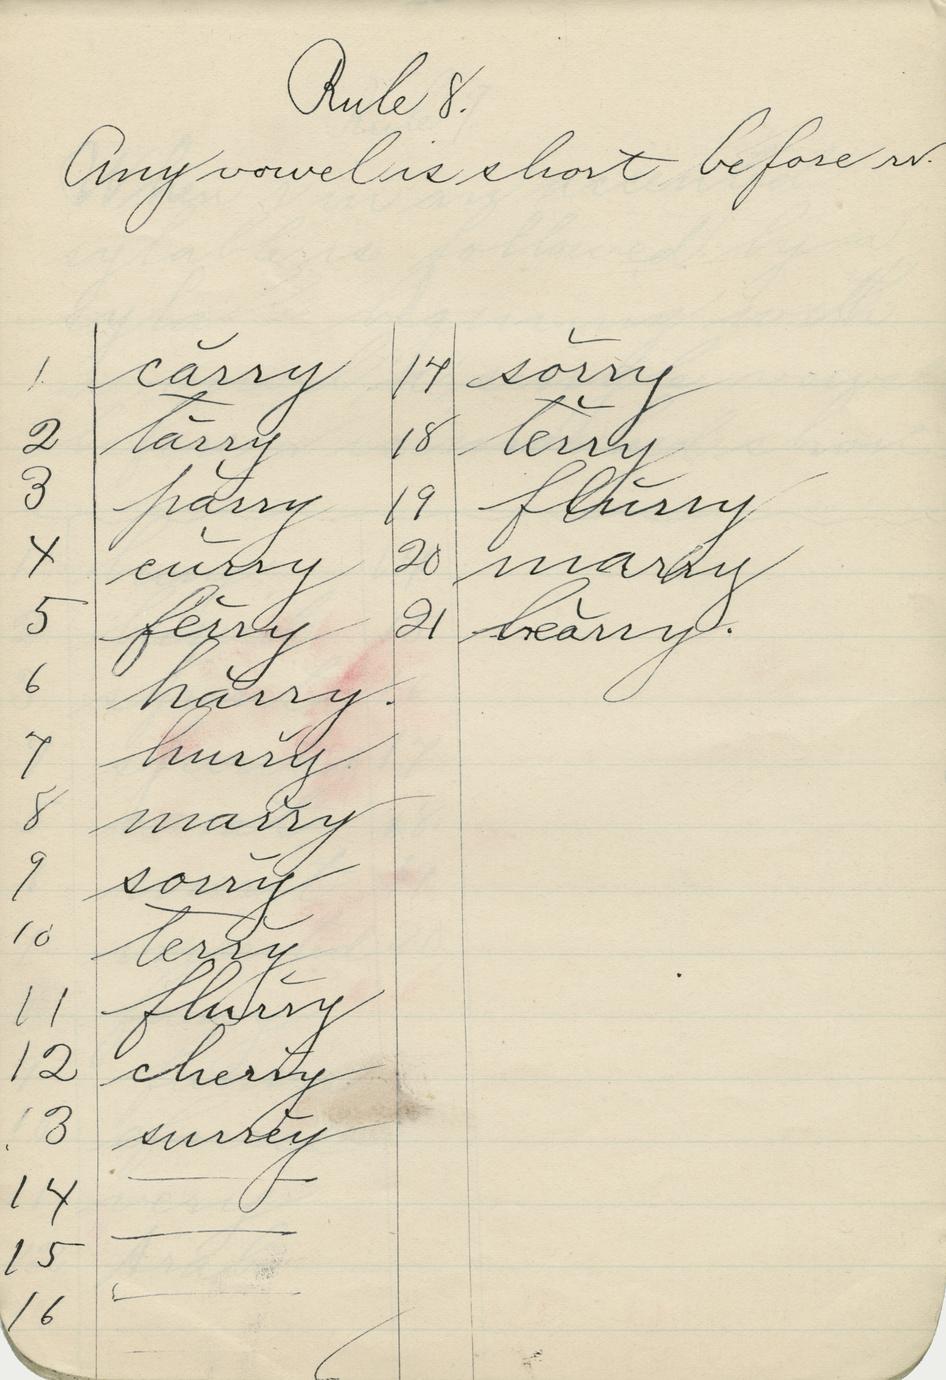 Rule 8.
Any vowel is short before rr.
1 cărry
2 tărry
3 părry
4 cŭrry
5 fĕrry
6 hărry.
7 hurry
8 marry
9 sorry
10 terry
11 flurry
12 cherry
13 surrey
14
15
16
17 sŏrry
18 tĕrry
19 flŭrry
20 marry
21